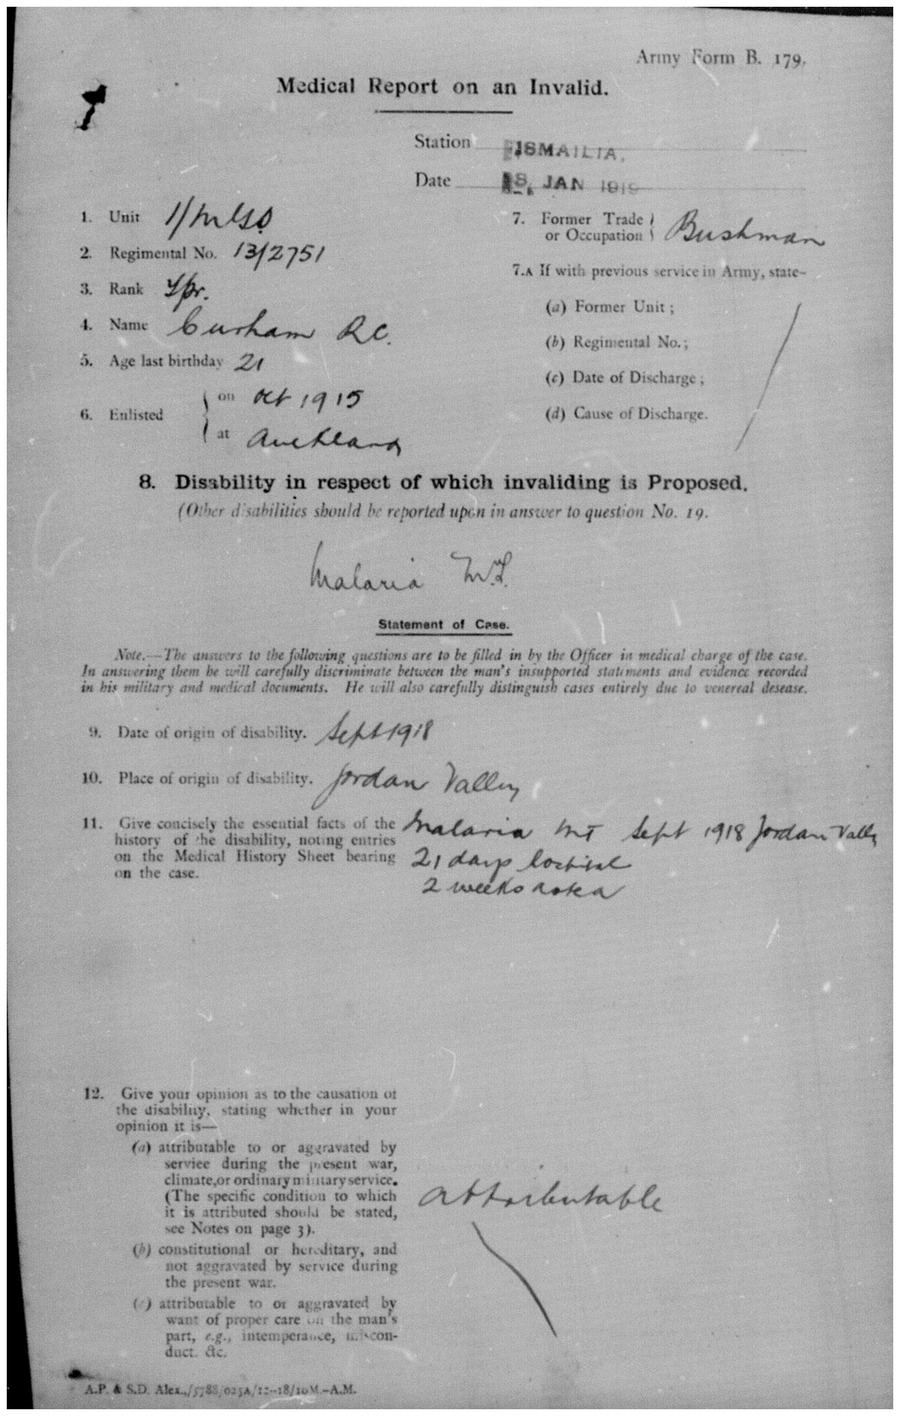 Army Form B. 179.
Medical Report on an Invalid.
Station ISMAILIA.
Date 8, JAN 1919
1. Unit
2. Regimental No. 13/2751
3. Rank Tpr.
4. Name Curham R.C.
5. Age last birthday 21
6. Enlisted on Oct 1915
at Auckland
7. Former Trade or Occupation Bushman
7.A If with previous service in Army, state—
(a) Former Unit;
(b) Regimental No.;
(c) Date of Discharge;
(d) Cause of Discharge.
8. Disability in respect of which invaliding is Proposed.
(Other disabilities should be reported upon in answer to question No. 19.
Malaria M.T.
Statement of Case.
Note.—The answers to the following questions are to be filled in by the Officer in medical charge of the case.
In answering them he will carefully discriminate between the man's insupported statements and evidence recorded
in his military and medical documents. He will also carefully distinguish cases entirely due to venereal desease.
9. Date of origin of disability. Sept 1918
10. Place of origin of disability. Jordan Valley
11. Give concisely the essential facts of the
history of the disability, noting entries
on the Medical History Sheet bearing
on the case.
Malaria MT Sept 1918 Jordan Valley
21 days hospital
2 weeks
12. Give your opinion as to the causation of
the disability, stating whether in your
opinion it is—
(a) attributable to or aggravated by
service during the present war,
climate, or ordinary military service.
(The specific condition to which
it is attributed should be stated,
see Notes on page 3).
attributable
(b) constitutional or hereditary, and
not aggravated by service during
the present war.
(c) attributable to or aggravated by
want of proper care on the man's
part, e.g., intemperance, miscon-
duct. &c.
A.P. & S.D. Alex./5788/025A/12-18/10M.-A.M.